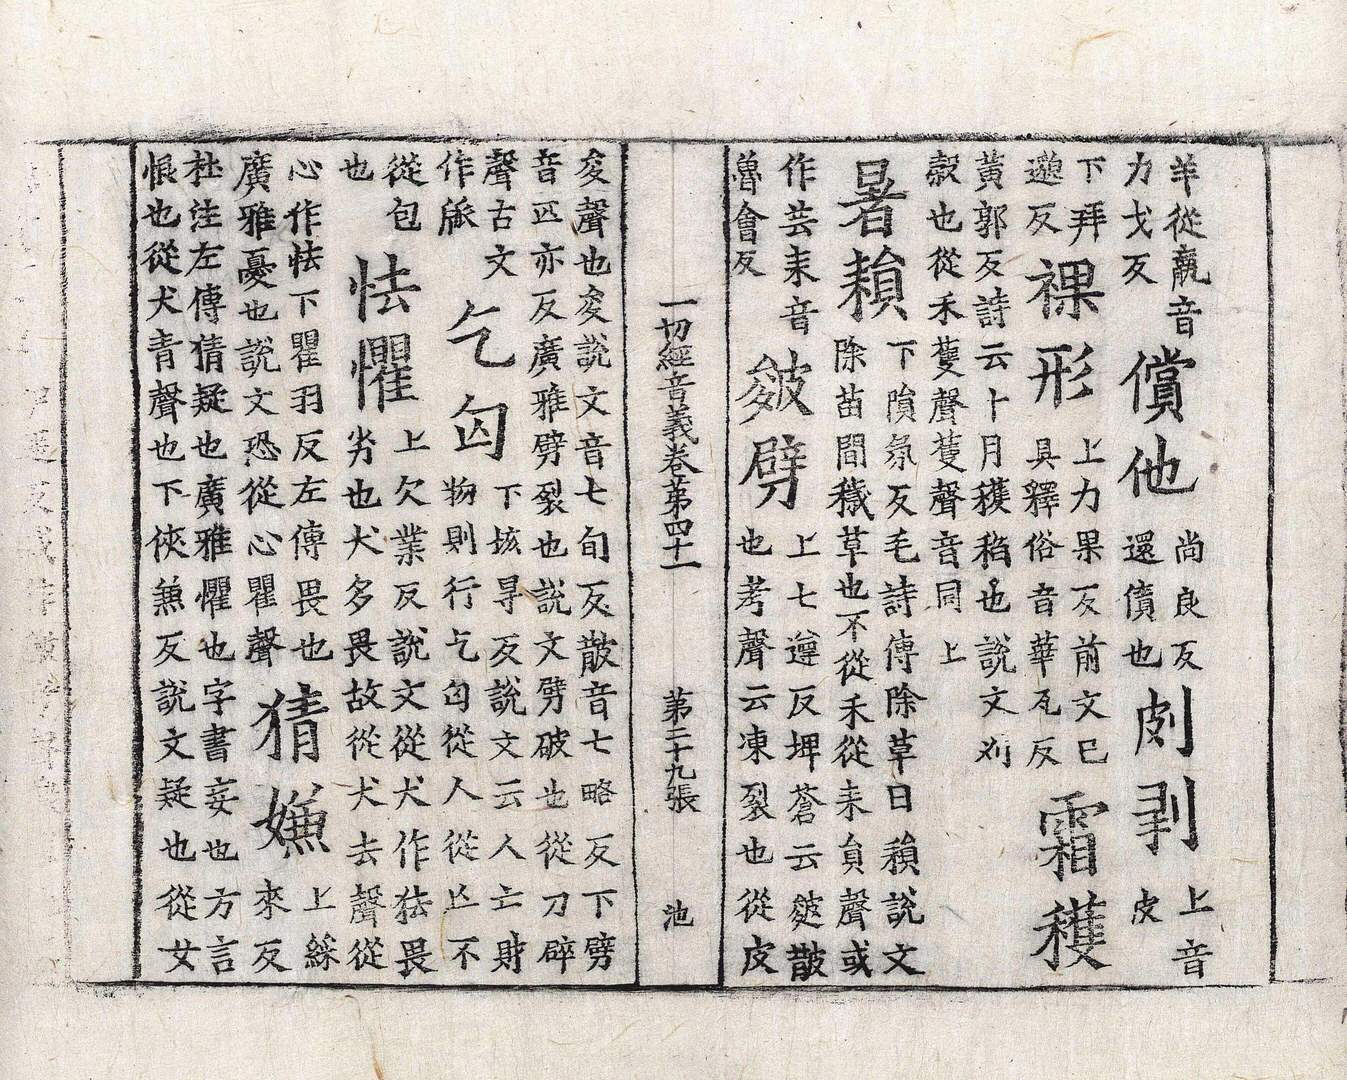 羊從羸音
力戈反
償他
尚良反
還債也
㓟剥
上音
皮
下拜
邈反
裸形
上力果反前文已
具釋俗音華瓦反
霜穫
黃郭反詩云十月穫稻也說文刈
穀也從禾蒦聲蒦聲音同上
暑䅫
下隕氛反毛詩傳除草曰䅫說文
除苗間穢草也不從禾從耒員聲或
作芸耒音
魯會反
皴劈
上七遵反埤蒼云皴皵
也考聲云凍裂也從皮
一切經音義卷第四十一 第二十九張 池
夋聲也夋說文音七旬反皵音七略反下劈
音匹亦反廣雅劈裂也說文劈破也從刀辟
聲古文
作脈
乞匃
下垓㝵反說文云人亡財
物則行乞匃從人從亡不
從包
也
怯懼
上欠業反說文從犬作㹤畏
劣也犬多畏故從犬去聲從
心作怯下瞿羽反左傳畏也
廣雅憂也說文恐從心瞿聲
猜嫌
上綵
來反
杜注左傳猜疑也廣雅懼也字書妄也方言
恨也從犬青聲也下俠兼反說文疑也從女